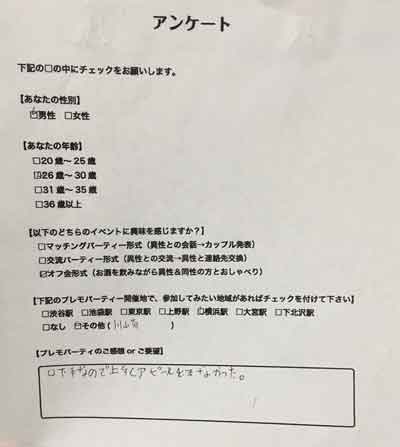 アンケート
下記の□の中にチェックをお願いします。
【あなたの性別】
☑男性 □女性
【あなたの年齢】
□20歳〜25歳
☑26歳〜30歳
□31歳〜35歳
□36歳以上
【以下のどちらのイベントに興味を感じますか?】
□マッチングパーティー形式(異性との会話→カップル発表)
□交流パーティー形式(異性との交流→異性と連絡先交換)
☑オフ会形式(お酒を飲みながら異性&同性の方とおしゃべり)
【下記のプレモパーティー開催地で、参加してみたい地域があればチェックを付けて下さい】
□渋谷駅 □池袋駅 □東京駅 □上野駅 ☑横浜駅 □大宮駅 □下北沢駅
□なし ☑その他( )
【プレモパーティのご感想 or ご要望】
口下手なので上手くアピールできなかった。